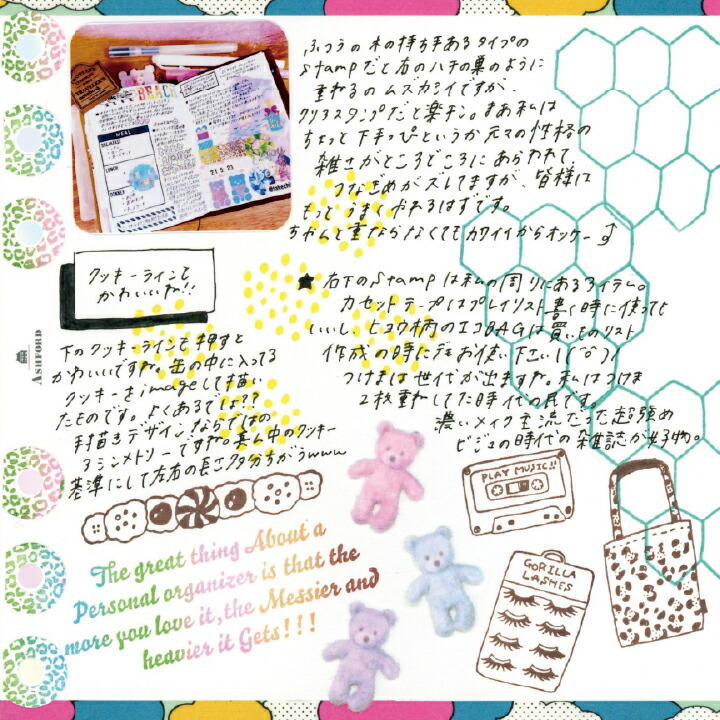 ふつうの木の持ち手あるタイプの
stampだと右のハチの巣のように
重ねるのムズカシイですが、
クリアスタンプだと楽チン。まあ私は
ちょっと下手っぴというか元々の性格の
雑さがところどころにあらわれて、
つなぎめがズレてますが、皆様は
もっとうまくやれるはずです。
ちゃんと重ならなくてもカワイイからオッケー♪
クッキーラインも
かわいいね!!
★右下のstampは私の周りにあるアイテム。
カセットテープはプレイリスト書く時に使っても
いいし、ヒョウ柄のエコBAGは買いものリスト
作成の時にでもお使い下さい!
つけまは世代が出ますが、私はつけま
2枚重ねしてた時代の民です。
濃いメイク主流だった超強め
ビジュの時代の雑誌が好物。
ASHFORD
下のクッキーラインも押すと
かわいいですね。缶の中に入ってる
クッキーをimageして描い
たものです。よくあるでしょ??
手描きデザインならではの
アシンメトリーですが真ん中のクッキー
基準にして左右の長さ多分ちがうwww
PLAY MUSIC!!
GORILLA
LASHES
The great thing About a
Personal organizer is that the
more you love it, the Messier and
heavier it Gets!!!
BEACH
MEAL
BREAKFAST
LUNCH
DINNER
21.5.23